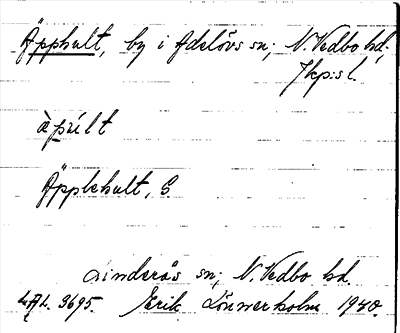 Äpphult, by i Adelövs sn; N. Vedbo hd,
Jkp:s l.
àpúlt
Äpplehult, G
Linderås sn; N. Vedbo hd.
3695. Erik Lönnerholm 1940.